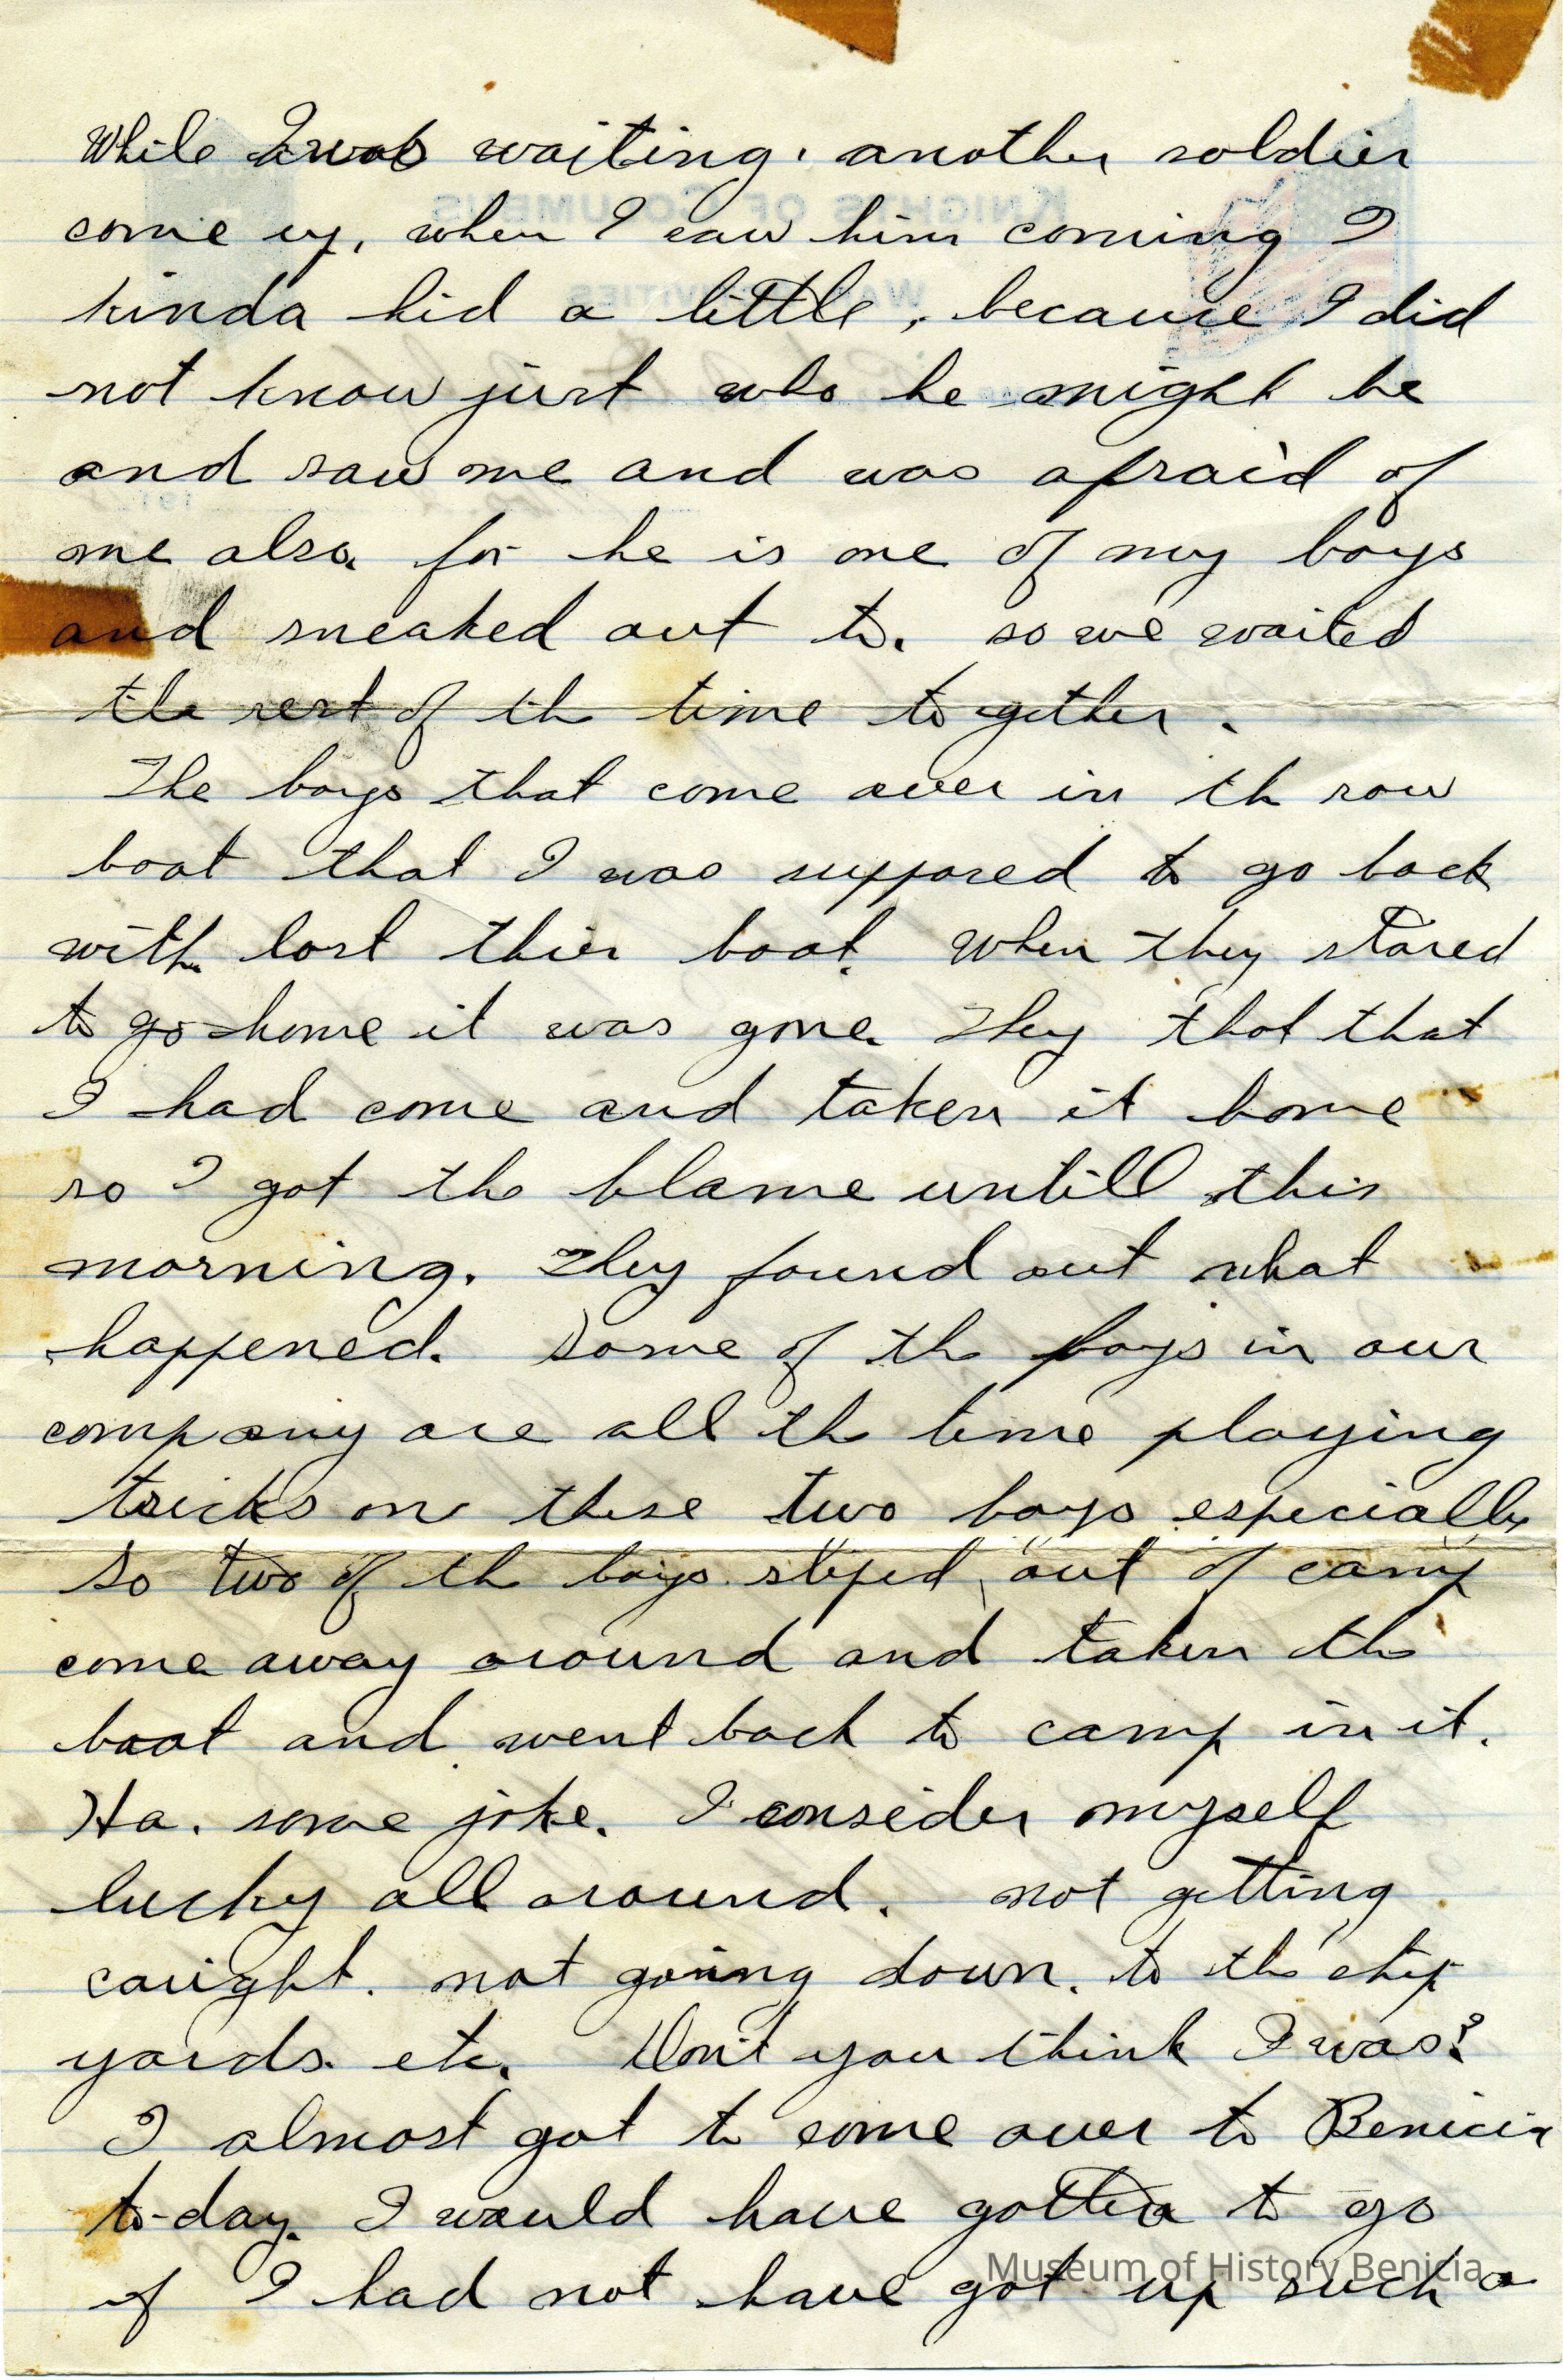 While I was waiting. another soldier
come up, when I saw him coming I
kinda hid a little, because I did
not know just who he might be
and saw me and was afraid of
me also. for he is one of my boys
and sneaked out to. so we waited
the rest of th time to gether.
The boys that come over in th row
boat that I was supposed to go back
with lost thier boat. When they stared
to go home it was gone. They thot that
I had come and taken it home
so I got the blame untill this
morning. They found out what
happened. Some of the boys in our
company are all the time playing
tricks on these two boys especially
So two of th boys sliped out of camp
come away around and taken the
boat and went back to camp in it.
Ha. some joke. I consider myself
lucky all around. not getting
caught. not going down. to the ship
yards. etc. Don't you think I was?
I almost got to come over to Benicia
to-day. I would have gotten to go
if I had not have got up such a
Museum of History Benicia
KNIGHTS OF COLUMBUS
WAR ACTIVITIES
191